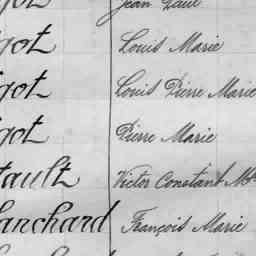 Jean Paul
got Louis Marie
got Louis Pierre Marie
got Pierre Marie
tault Victor Constant Mie
lanchard François Marie